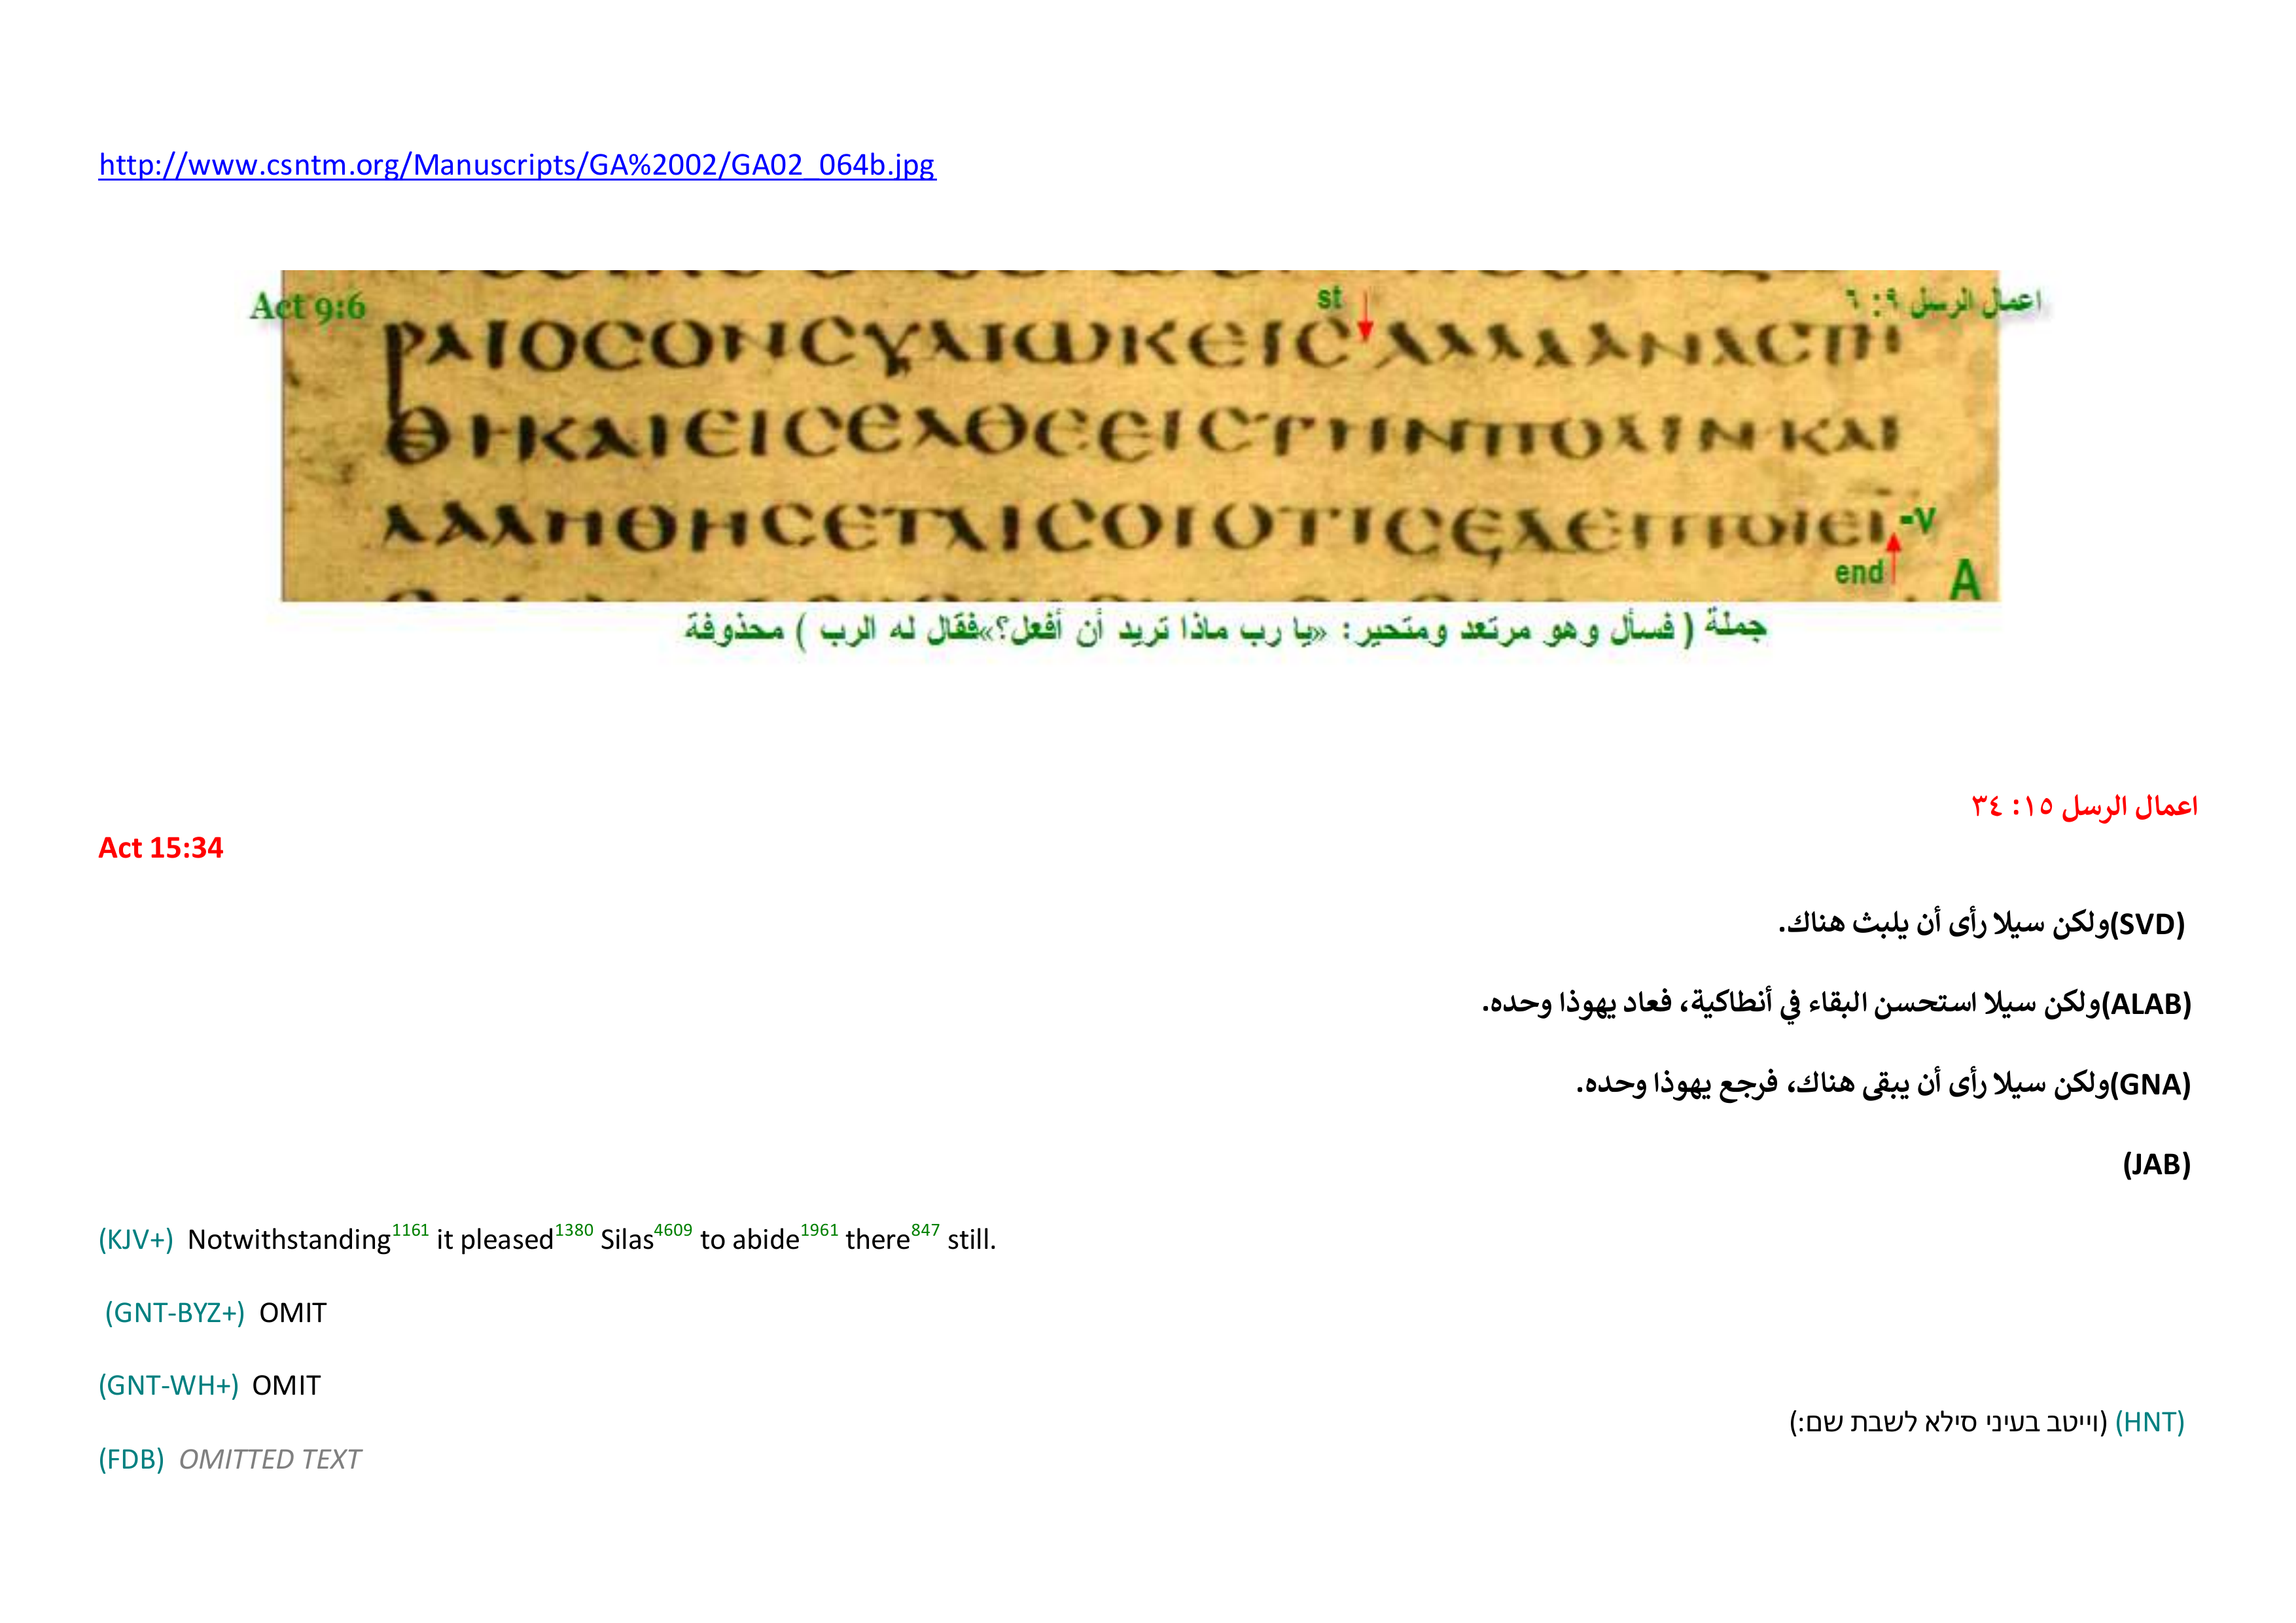 http://www.csntm.org/Manuscripts/GA%2002/GA02_064b.jpg
Act 9:6
st
اعمال الرسل ٩: ٦
ΡΑΙΟCΟΝCΥΔΙΩΚΕΙC ΑΛΛΑΑΝΑCΤΗ
ΘΗΚΑΙΕΙCΕΛΘΕΕΙCΤΗΝΠΟΛΙΝΚΑΙ
ΛΑΛΗΘΗCΕΤΑΙCΟΙΟΤΙCΕΔΕΙΠΟΙΕΙ
-v
end
A
جملة ( فسأل وهو مرتعد ومتحير: «يا رب ماذا تريد أن أفعل؟»فقال له الرب ) محذوفة
اعمال الرسل ١٥: ٣٤
Act 15:34
(SVD)ولكن سيلا رأى أن يلبث هناك.
(ALAB)ولكن سيلا استحسن البقاء في أنطاكية، فعاد يهوذا وحده.
(GNA)ولكن سيلا رأى أن يبقى هناك، فرجع يهوذا وحده.
(JAB)
(KJV+) Notwithstanding1161 it pleased1380 Silas4609 to abide1961 there847 still.
(GNT-BYZ+) OMIT
(GNT-WH+) OMIT
(HNT) (וייטב בעיני סילא לשבת שם:)
(FDB) OMITTED TEXT